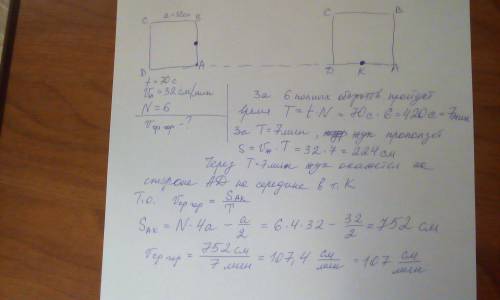 C a = 32см B
D A
C B
D K A
t = 70 с
Vж = 32 см/мин
N = 6
Vср гор - ?
За 6 полных оборотов пройдет
время T = t · N = 70 с · 6 = 420 с = 7 мин
За T = 7 мин, жук проползет
S = Vж · T = 32 · 7 = 224 см
Через T = 7 мин жук окажется на
стороне AD на середине в т. K
Т.о. Vср гор = SAK / T
SAK = N · 4a - a/2 = 6 · 4 · 32 - 32/2 = 752 см
Vср гор = 752 см / 7 мин = 107,4 см/мин = 107 см/мин